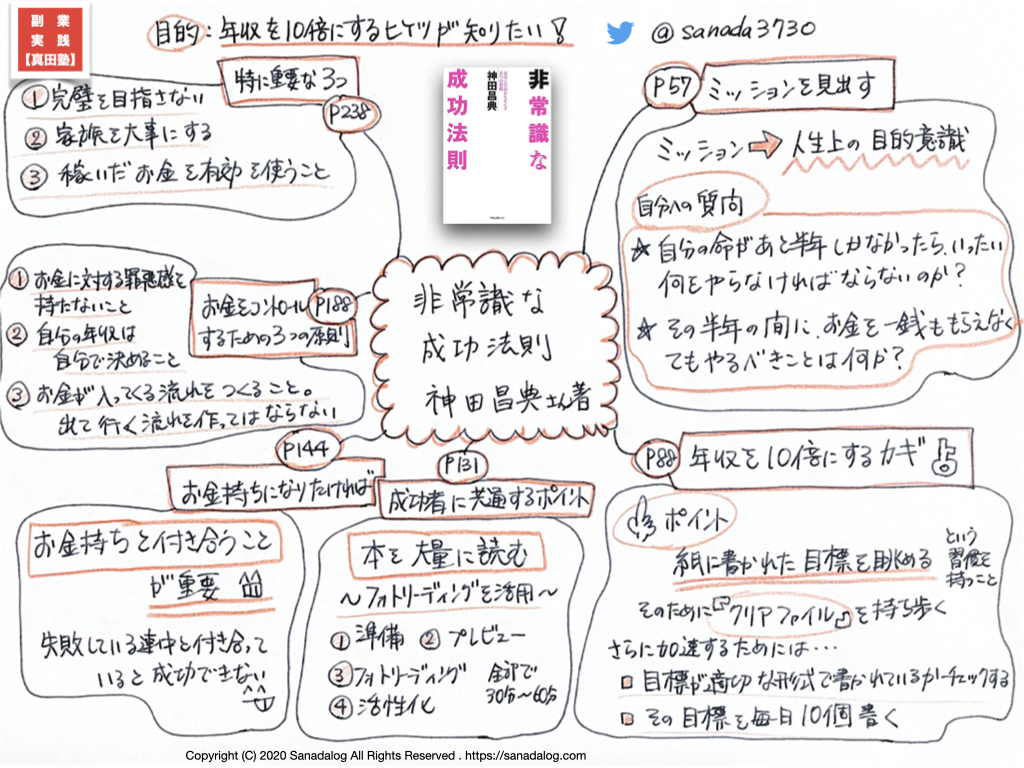 副業
実践
【真田塾】
目的：年収を10倍にするヒケツが知りたい！
@sanada3730
特に重要な3つ
P238
① 完璧を目指さない
② 家族を大事にする
③ 稼いだお金を有効を使うこと
非常識な
成功法則
神田昌典
P57
ミッションを見出す
ミッション→人生上の目的意識
自分への質問
★ 自分の命があと半年しかなかったら、いったい
何をやらなければならないのか？
★ その半年の間に、お金を一銭ももらえなく
てもやるべきことは何か？
お金をコントロール
するための3つの原則
P188
① お金に対する罪悪感を
持たないこと
② 自分の年収は
自分で決めること
③ お金が入ってくる流れをつくること。
出て行く流れを作ってはならない
非常識な
成功法則
神田昌典さん著
P144
お金持ちになりたければ
お金持ちと付き合うこと
が重要
失敗している連中と付き合って
いると成功できない
P131
成功者に共通するポイント
本を大量に読む
～フォトリーディングを活用～
① 準備 ② プレビュー
③ フォトリーディング
④ 活性化
全部で
30分～60分
P88
年収を10倍にするカギ
ポイント
紙に書かれた目標を眺める
という
習慣を
持つこと
そのために『クリアファイル』を持ち歩く
さらに加速するためには…
□ 目標が適切な形式で書かれているかチェックする
□ その目標を毎日10個書く
Copyright (C) 2020 Sanadalog All Rights Reserved . https://sanadalog.com